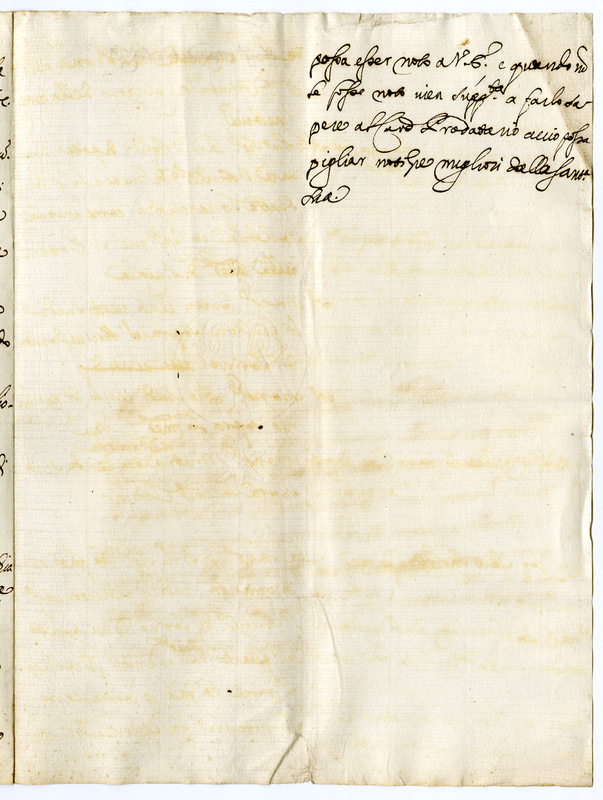 possa esser noto a V. S. e quando nō
le fosse noto vien suppta a farlo sa-
pere al Card Prodatario acciò possa
pigliar notizie migliori della